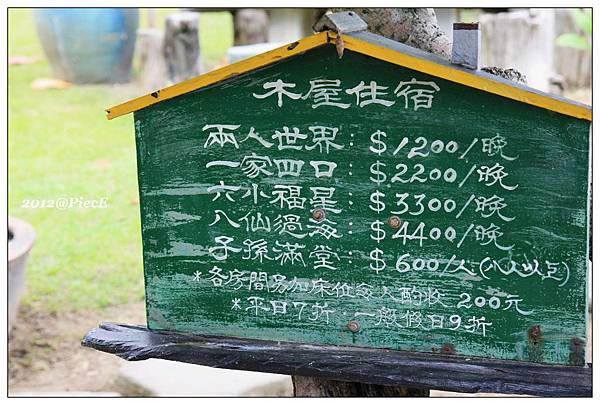 木屋住宿
兩人世界：$1200/晚
一家四口：$2200/晚
六小福星：$3300/晚
八仙過海：$4400/晚
子孫滿堂：$600/人(八人以上)
*各房間另加床位每人酌收200元
*平日7折．一般假日9折
2012@PiecE